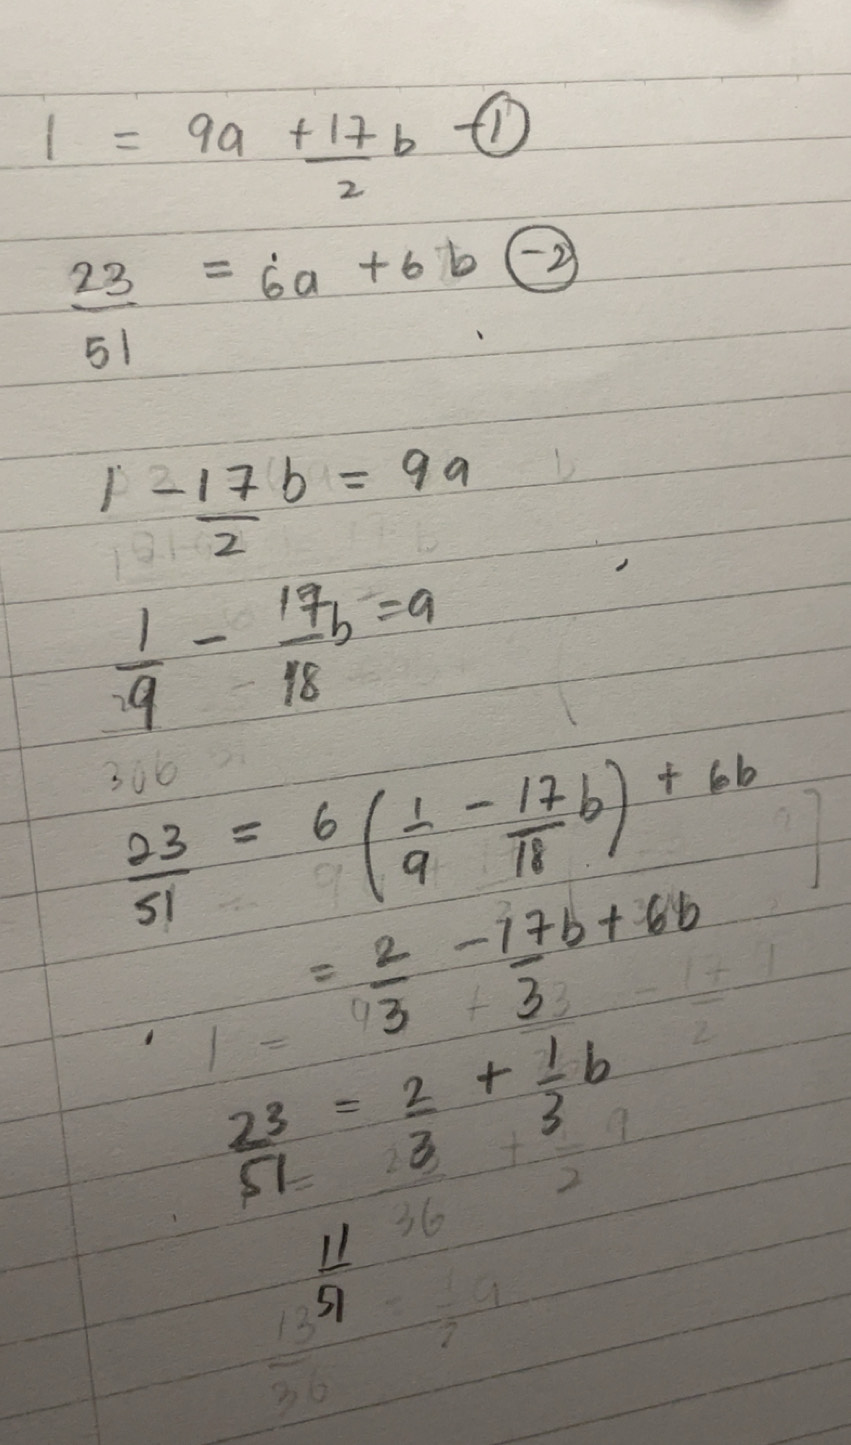 1 = 9a + 17/2 b - ①
23/51 = 6a + 6b (-2)
1 - 17/2 b = 9a
1/9 - 17/18 b = a
23/51 = 6 ( 1/9 - 17/18 b ) + 6b
= 2/3 - 17/3 b + 6b
23/51 = 2/3 + 1/3 b
11/51